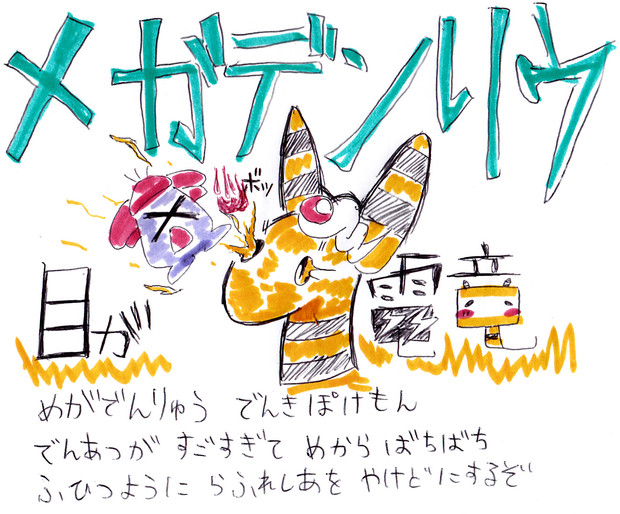 メガデンリウ
ボッ
目が 電竜
めがでんりゅう でんきぽけもん
でんあつが すごすぎて めから ばちばち
ふひつように らふれしあを やけどにするぞ